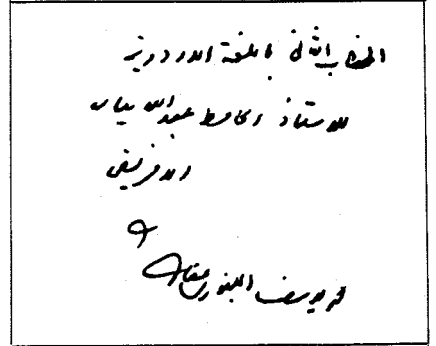 الخطاب الثاني باللغة الاردوية
للاستاذ الحافظ عبد الله
الافريقي
محمد يوسف البنوري عفا